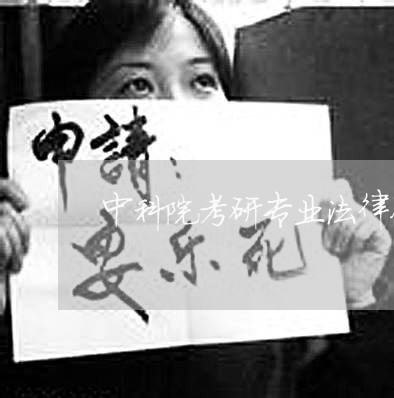 申請：
中科院考研专业法律
安乐死